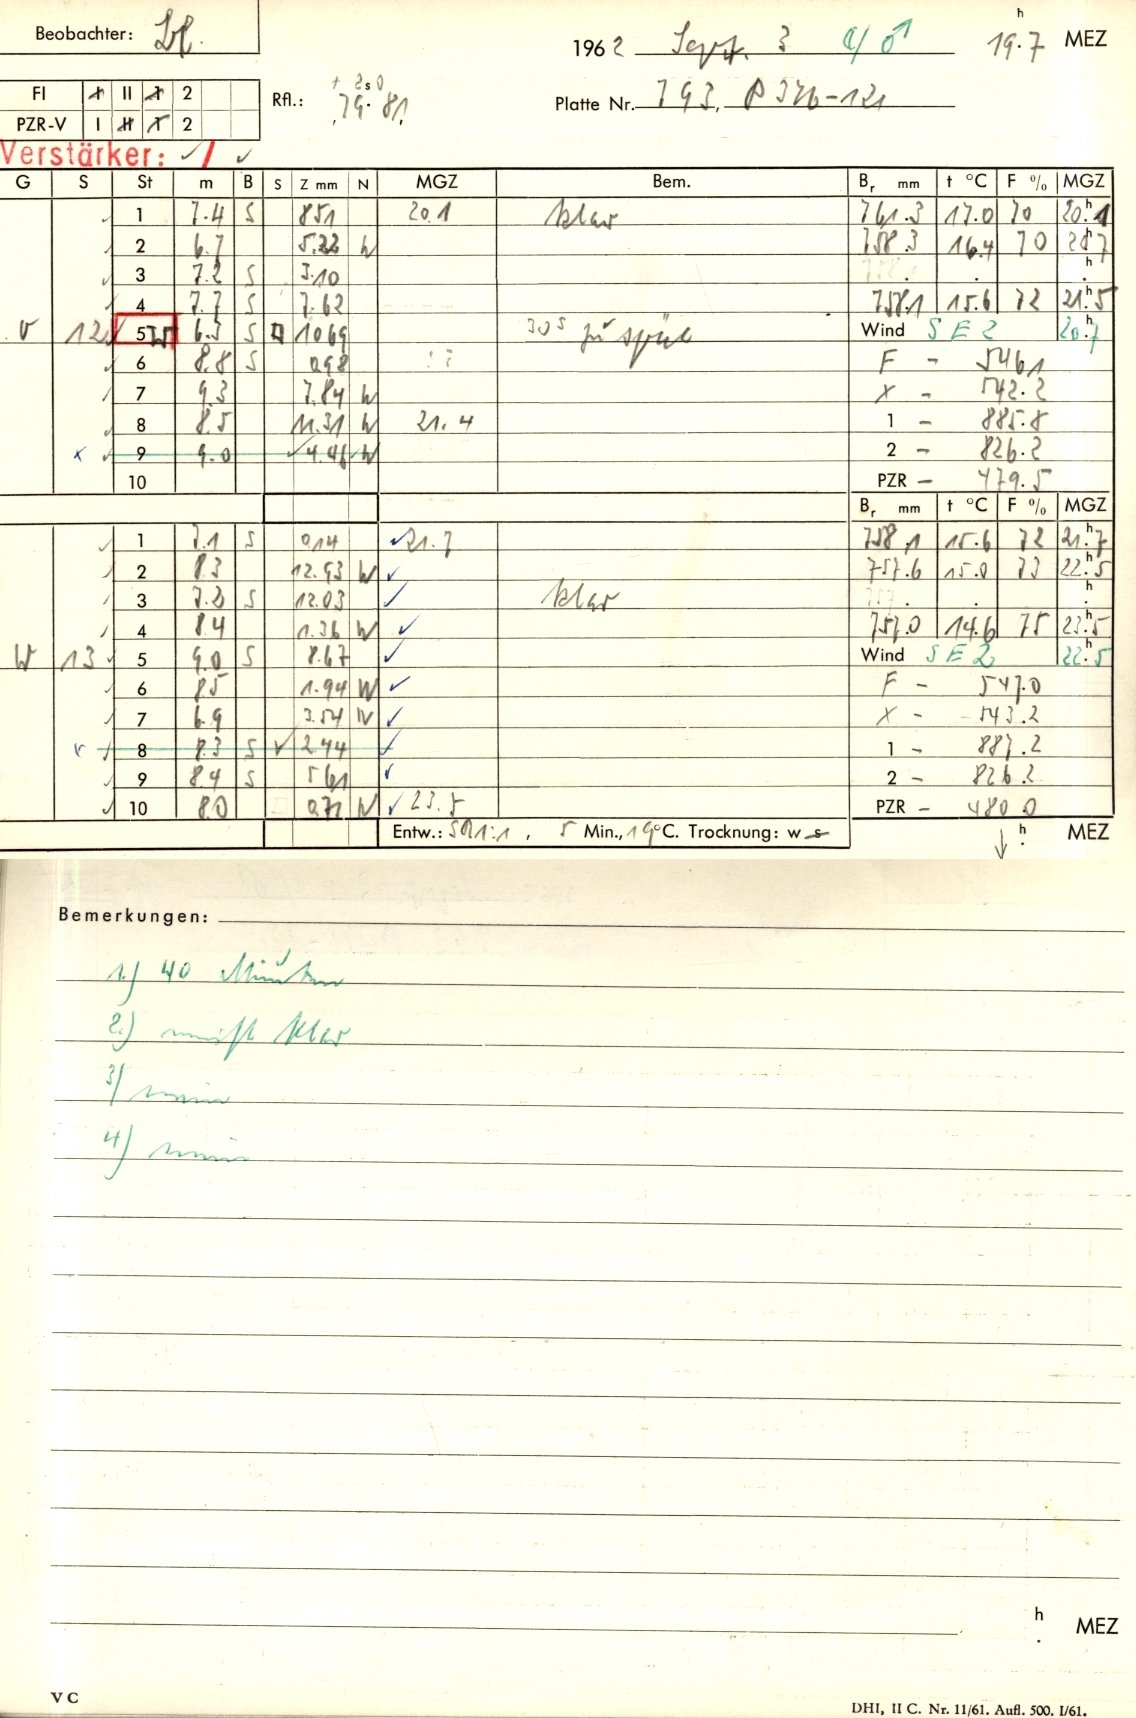 Beobachter:
1962 Sept. 3 19.7 h MEZ
FI I II 1 2
Rfl.: 79.81
Platte Nr. 793, P 326-121
PZR-V I II 1 2
Verstärker:
G S St m B S Z mm N MGZ Bem. Br mm t °C F % MGZ
1 7.4 S 851 20.1 klar 761.3 17.0 70 20.1 h
2 6.7 5.22 W 758.3 16.4 70 h
3 7.2 S 3.10 h
4 7.7 S 7.62 758.1 15.6 72 21.5 h
V 12 5 W 6.3 S 1069 zu spät Wind SE 2 20.7 h
6 8.8 S 098 F - 546.1
7 9.3 7.84 W X - 542.2
8 8.5 11.31 W 21.4 1 - 885.8
x 9 9.0 4.46 W 2 - 826.2
10 PZR - 479.5
Br mm t °C F % MGZ
1 7.1 S 014 21.7 758.1 15.6 72 21.7 h
2 8.3 12.93 W 757.6 15.0 73 22.5 h
3 7.2 S 12.03 klar h
4 8.4 1.36 W 757.0 14.6 75 23.5 h
W 13 5 9.0 S 8.67 Wind SE 2 22.5 h
6 8.5 1.94 W F - 547.0
7 6.9 3.54 W X - 543.2
8 8.3 S 2.44 1 - 887.2
9 8.4 S 561 2 - 826.2
10 8.0 071 W 23.5 PZR - 480.0
Entw.: 1:1, 5 Min., 19°C. Trocknung: w s h MEZ
Bemerkungen:
1.) 40 Minuten
2.) meist klar
3) nein
4) nein
h MEZ
V C
DHI, II C. Nr. 11/61. Aufl. 500. I/61.